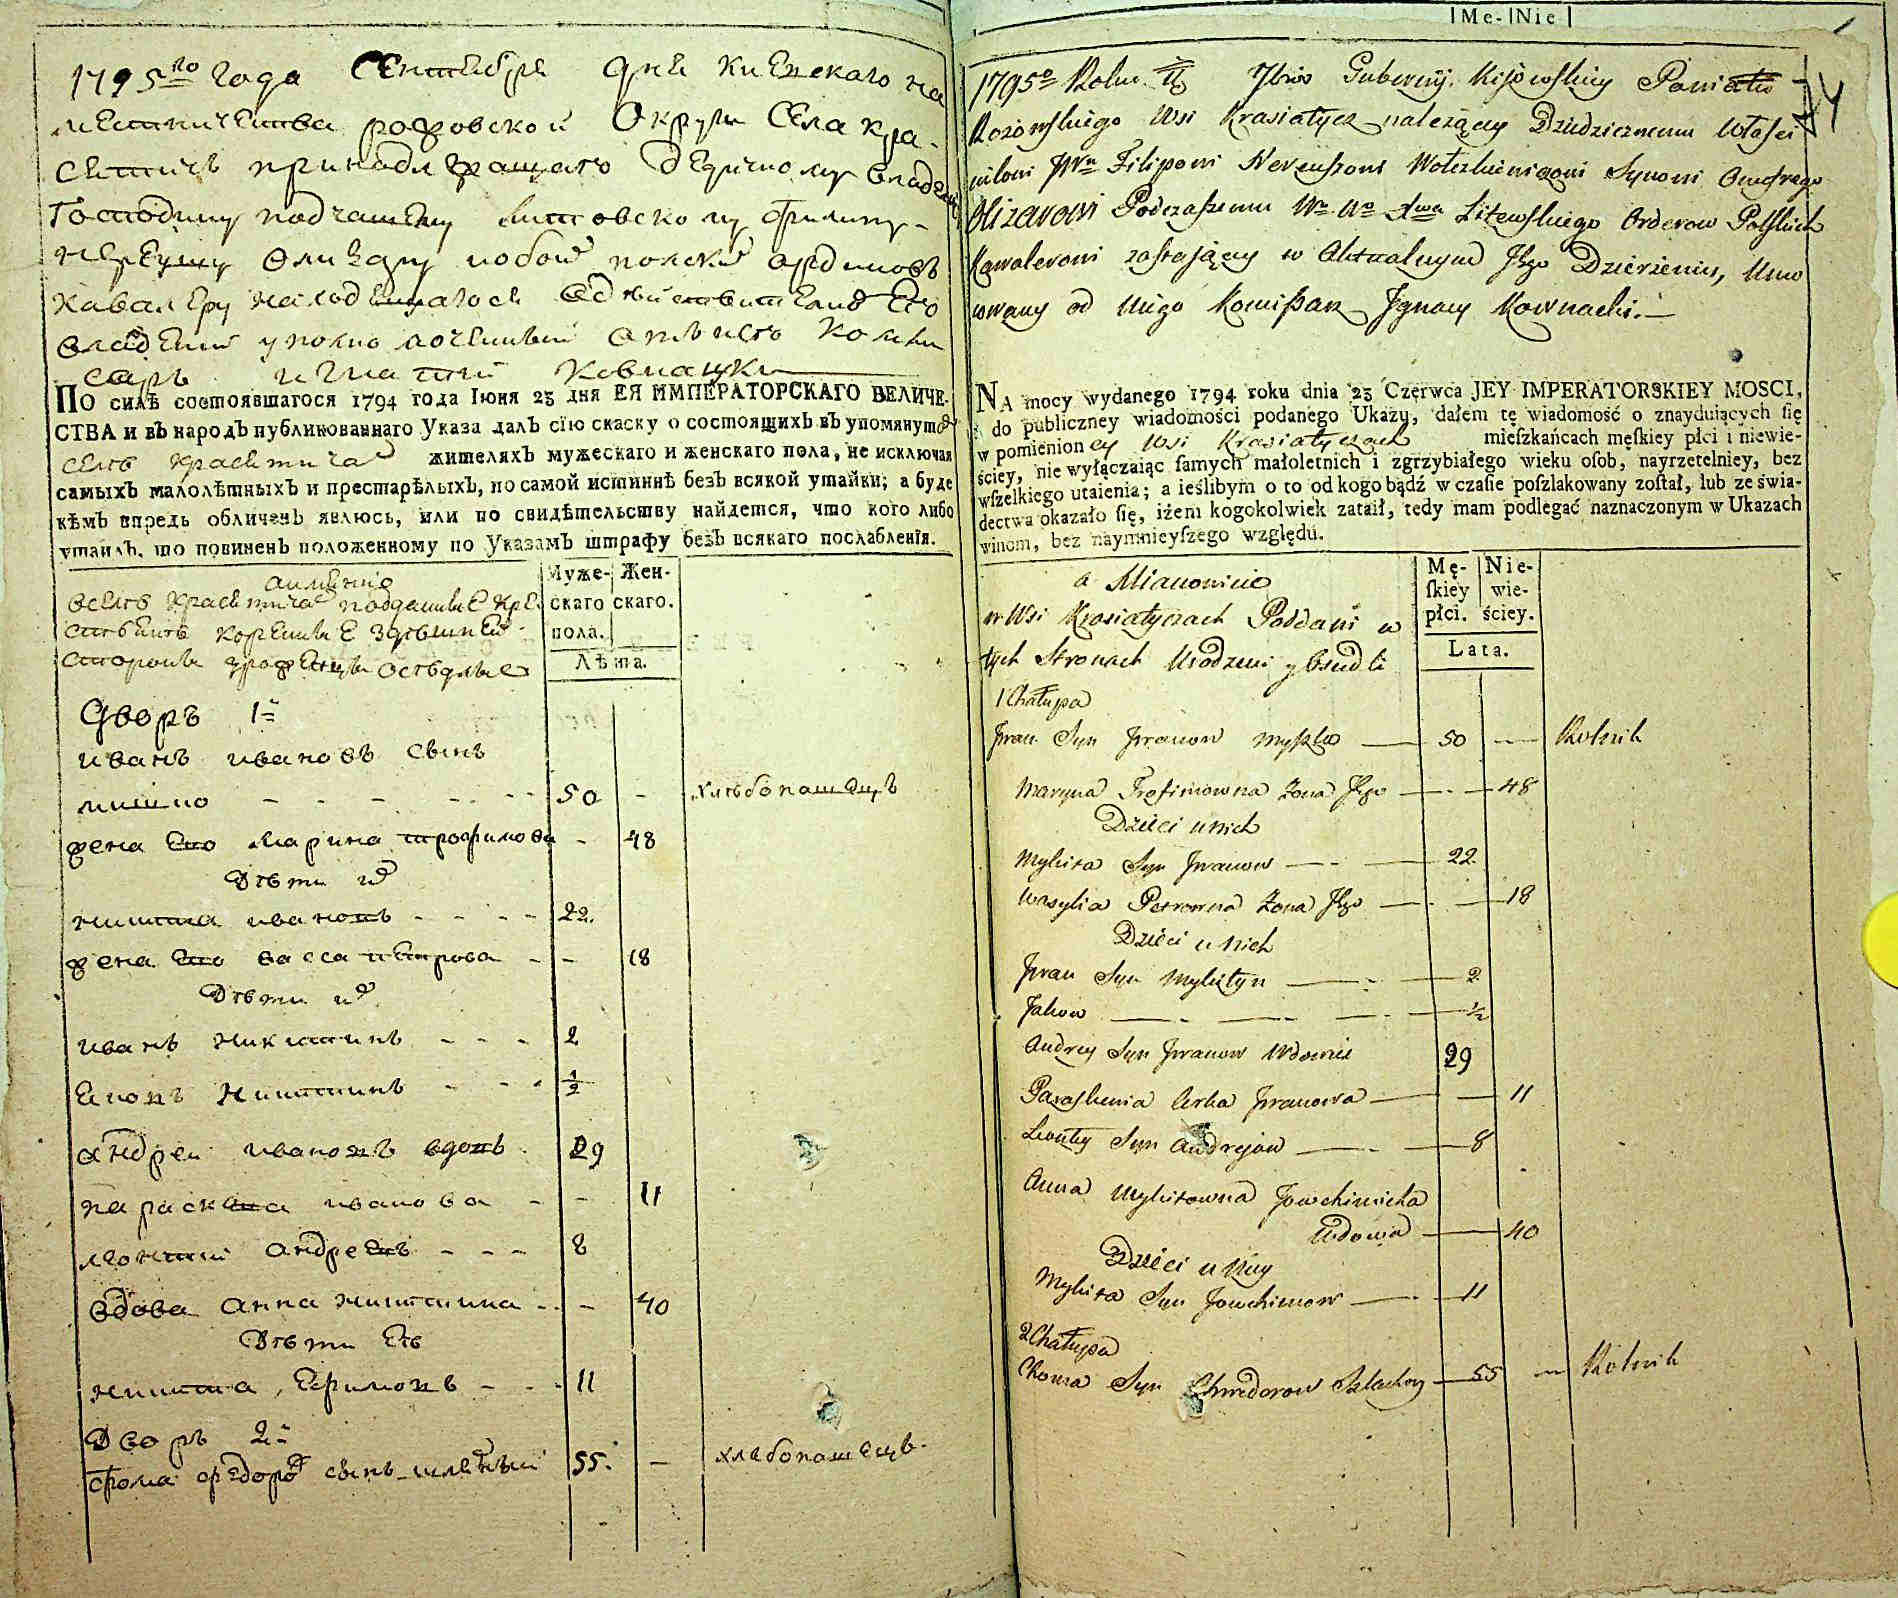 1795го года Сентября дня Киевскаго на
местничества рожовской Округи Села Кра-
сятичъ принадлежащаго дедичному владел
Господину подчашему литовскому Филипу
Нереушу Олизару обоих полских ординовъ
Кавалеру находящагося в действителном его
владении уполномоченный от него Коми
саръ игнатий Ковнацки
ПО силѣ состоявшагося 1794 года Іюня 23 дня ЕЯ ИМПЕРАТОРСКАГО ВЕЛИЧЕ-
СТВА и въ народъ публикованнаго Указа далъ сію скаску о состоящихъ въ упомянутом
селѣ Красятичах жителяхъ мужескаго и женскаго пола, не исключая
самыхъ малолѣтныхъ и престарѣлыхъ, по самой истиннѣ безъ всякой утайки; а буде
кѣмъ впредь обличенъ явлюсь, или по свидѣтельству найдется, что кого либо
утаилъ, то повиненъ положенному по Указамъ штрафу безъ всякаго послабленія.
а имянно
в селѣ Красятичах подданные кре
стьяне коренные здешней
стороны уроженцы оседлые
Муже- Жен-
скаго скаго.
пола.
Лѣта.
Дворъ 1й
иванъ ивановъ сынъ
мишко - - - - 50 - хлѣбопашецъ
жена его марина трофимова - 48
Дѣти их
никита ивановъ - - - - 22.
жена его васса петрова - - 18
Дѣти их
иванъ никитинъ - - - 2
никитинъ - - - ½
андреи ивановъ вдовъ 29
параскева иванова - - 11
леонтий андреевъ - - - 8
вдова анна никитина - - - 40
Дѣти Еѣ
никита, Ефимовъ - - - 11
Дворъ 2й
фома федоров сынъ 55. - хлѣбопашецъ.
|Me-|Nie|
1795o Roku 7bra Gubernij Kijowskiey Powiatu
Rożowskiego Wsi Krasiatycz należącey Dziedzicznemu Właści
cielowi JWu Filipowi Nereuszowi Synowi Onufrego
Olizarowi Podczaszemu Wo Wo Xwa Litewskiego Orderow Polskich
Kawalerowi zostającey w Aktualnym Jego Dzierżeniu, Umo
cowany od Niego Komissarz Jgnacy Kownacki.
NA mocy wydanego 1794 roku dnia 23 Czerwca JEY IMPERATORSKIEY MOSCI,
do publiczney wiadomości podanego Ukazu, dałem tę wiadomość o znayduiących się
w pomienioney Wsi Krasiatyczach mieſzkańcach męſkiey płci i niewie-
ściey, nie wyłączaiąc ſamych małoletnich i zgrzybiałego wieku oſob, nayrzetelniey, bez
wſzelkiego utaienia; a ieślibym o to od kogo bądź w czaſie poſzlakowany zoſtał, lub ze świa-
dectwa okazało ſię, iżem kogokolwiek zataił, tedy mam podlegać naznaczonym w Ukazach
winom, bez naymnieyſzego względu.
a Mianowicie
w Wsi Krasiatyczach Poddani w
tych Stronach Urodzeni y Osiedli
Mę- Nie-
ſkiey wie-
płci. ściey.
Lata.
1 Chałupa
Jwan Syn Jwanow Myszko 50 Rolnik
Maryna Trofimowna Żona Jego 48
Dzieci u nich
Mykita Syn Jwanow 22
Wasylia Petrowna Żona Jego 18
Dzieci u Nich
Jwan Syn Mykityn 2
Jakow ½
Andrey Syn Jwanow Wdowiec 29
Paraskewia Corka Jwanowa 11
Leonty Syn Andrejow 8
Anna Mykitowna Jowchimicha
Wdowa 40
Dzieci u Niey
Mykita Syn Jowchimow 11
2 Chałupa
Choma Syn Chwedorow Szlachny 55 Rolnik